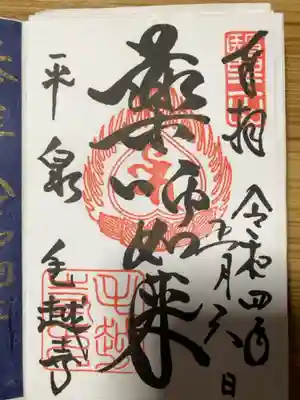 奉拝
令和四年
五月六日
薬師如来
平泉 毛越寺